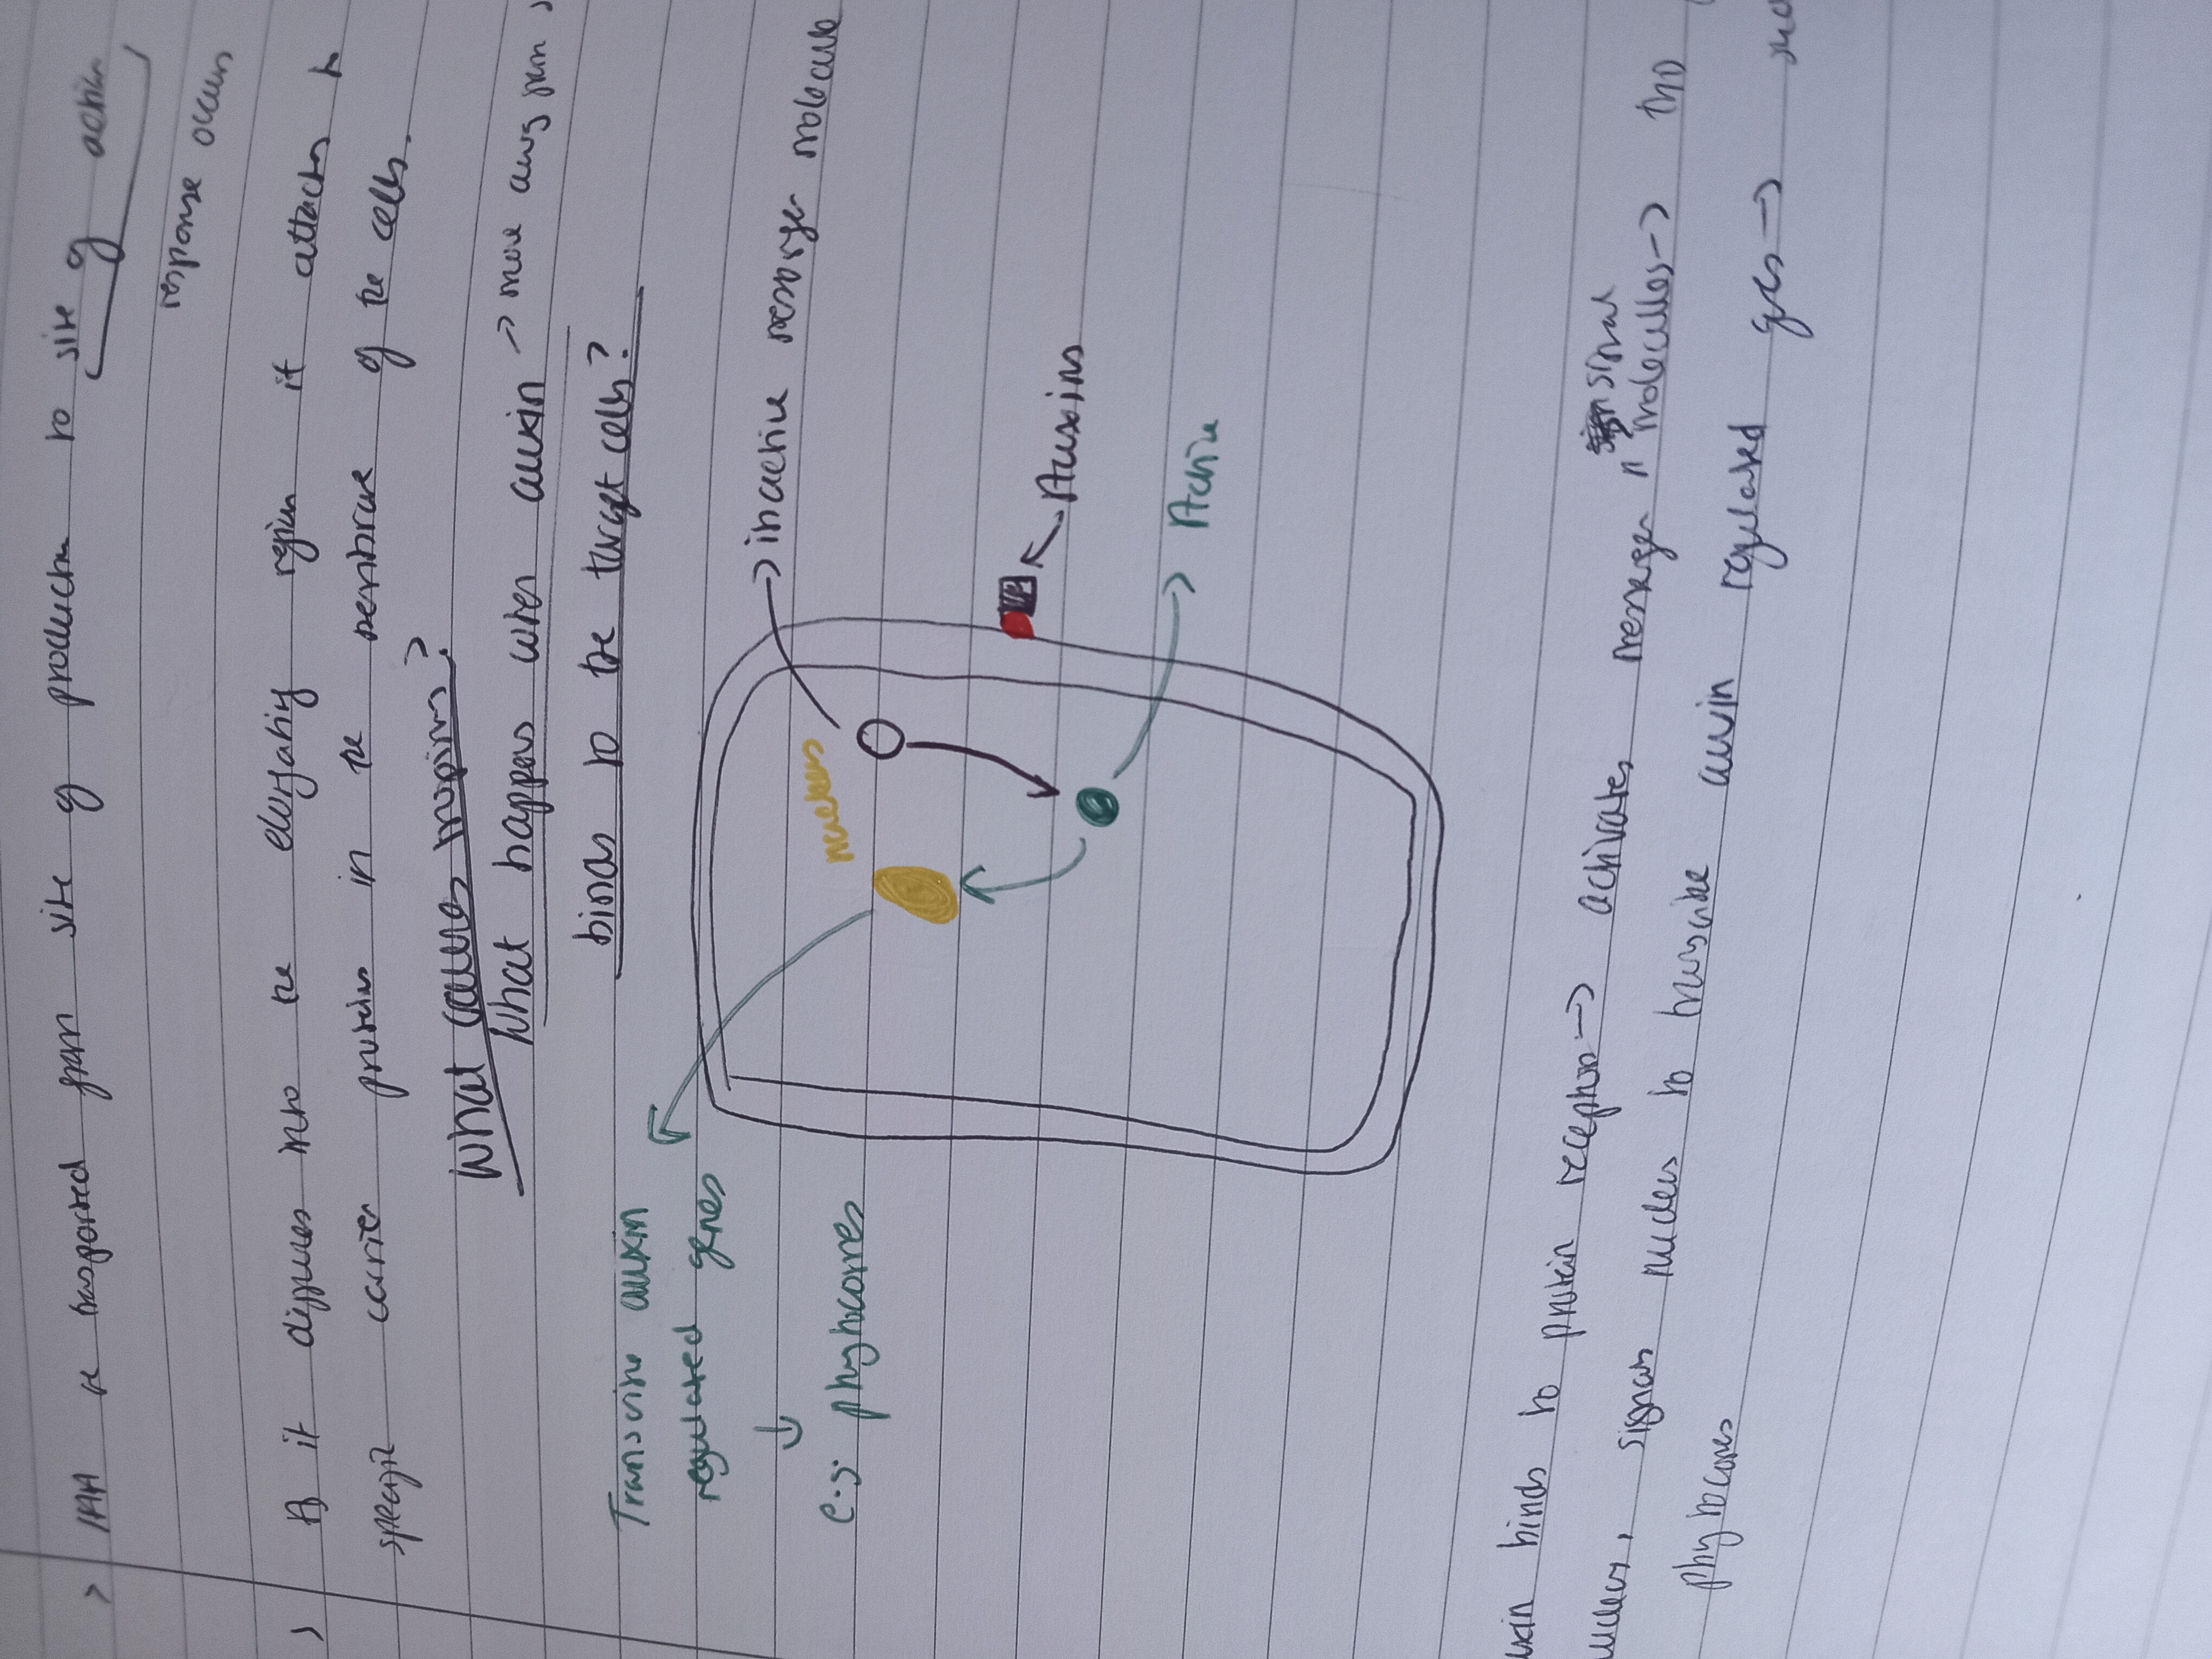 > IAA is transported from site of production to site of action
response occurs
> As it diffuses into the elongating region it attaches to
specific carrier proteins in the membrane of the cells.
What causes
What happens when auxin → more away from
binds to the target cells?
→ inactive messenger molecule
nucleus
Auxins
Active
Transcribe auxin
regulated genes
↓
e.g. phytocromes
uxin binds to protein receptor → activates messenger signal molecules →
nucleus, signals nucleus to transcribe auxin regulated genes →
phytocromes